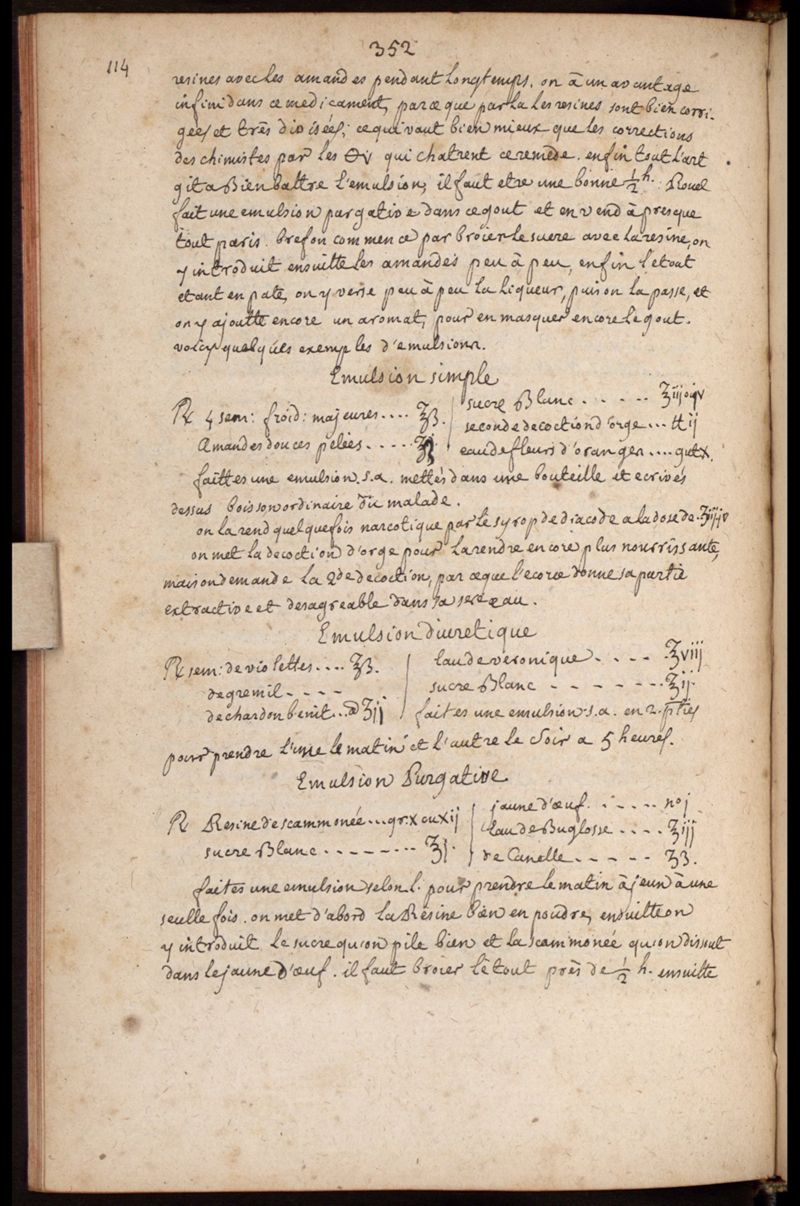 352
114
resines avec les amandes pendant Longtemps. on à un avantage
infini dans ce medicament, parce que par la les resines sont bien corri-
gées et très divisées; ce qui vaut bien mieux que les corrections
des chimistes par les qui chatrent ce remede. enfin tout l'art
git a Bien battre l'emulsion, il faut etre une bonne ½ h. Rouel
fait une emulsion purgative dans ce gout et en vend à presque
tout paris. bref on commence par broïer le sucre avec la resine, on
y introduit ensuitte les amandes peu à peu, enfin le tout
etant en pate, on y verse peu à peu la liqueur, puis on la passe, et
on y ajoutte encore un aromat, pour en masquer encore le gout.
voicy quelques exemples d'emulsions.
Emulsion simple
℞ 4 sem: froid: majeures.... ʒß.
Amandes douces pelées.....
sucre Blanc ......
seconde decoction d'orge... ℔ ij
eau de fleurs d'oranger.... gutt x.
faittes une emulsion. s.a. mettés dans une bouteille et ecrivés
dessus boisson ordinaire du malade.
on la rend quelquefois narcotique par le syrop de diacode a la dose de
on met la decoction d'orge pour la rendre encore plus nourrissante,
mais on demande la 2de decoction, parceque l'ecorce donne sa partie
extractive et desagreable dans sa 1ere eau.
Emulsion diuretique
℞ sem: de violettes.... ʒß.
de gremil....
de chardon benit... ā ʒij
Eau de veronique.... ʒviij
sucre Blanc ........ ʒij.
faites une emulsion s.a. en 2. pties
pour prendre l'une le matin et l'autre le soir a 5 heures.
Emulsion Purgative
℞ Resine de scammonée... gr. x ou xij
sucre Blanc ........ ʒj.
jaune d'œuf...... no j
Eau de Buglosse.... ʒiij
de Canelle..... ʒß.
faites une emulsion selon l. pour prendre le matin à jeun à une
seulle fois. on met d'abord la Résine bien en poudre, ensuitte on
y introduit le sucre qu'on pile bien et la scammonée qu'on dissout
dans le jaune d'œuf. il faut broïer le tout près de ½ h. ensuitte